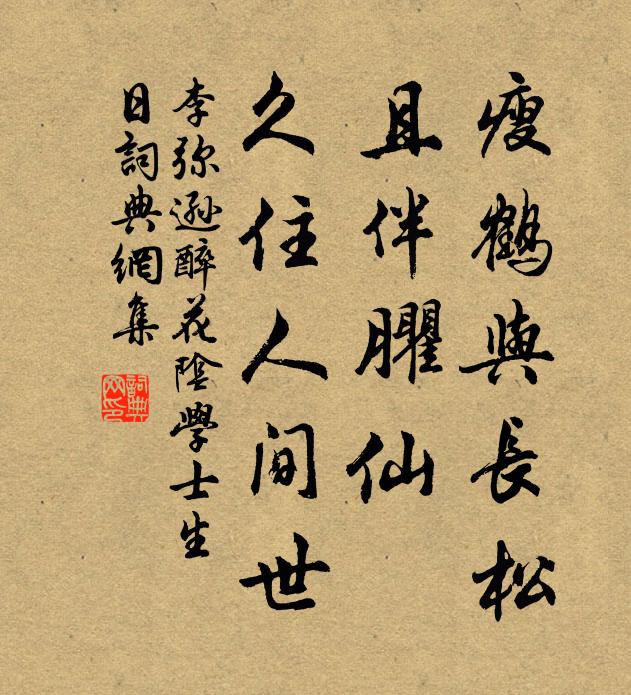 瘦鶴與長松
且伴臞仙
久住人間世
李弥遜醉花陰學士生
日詞典網集
詞典網印